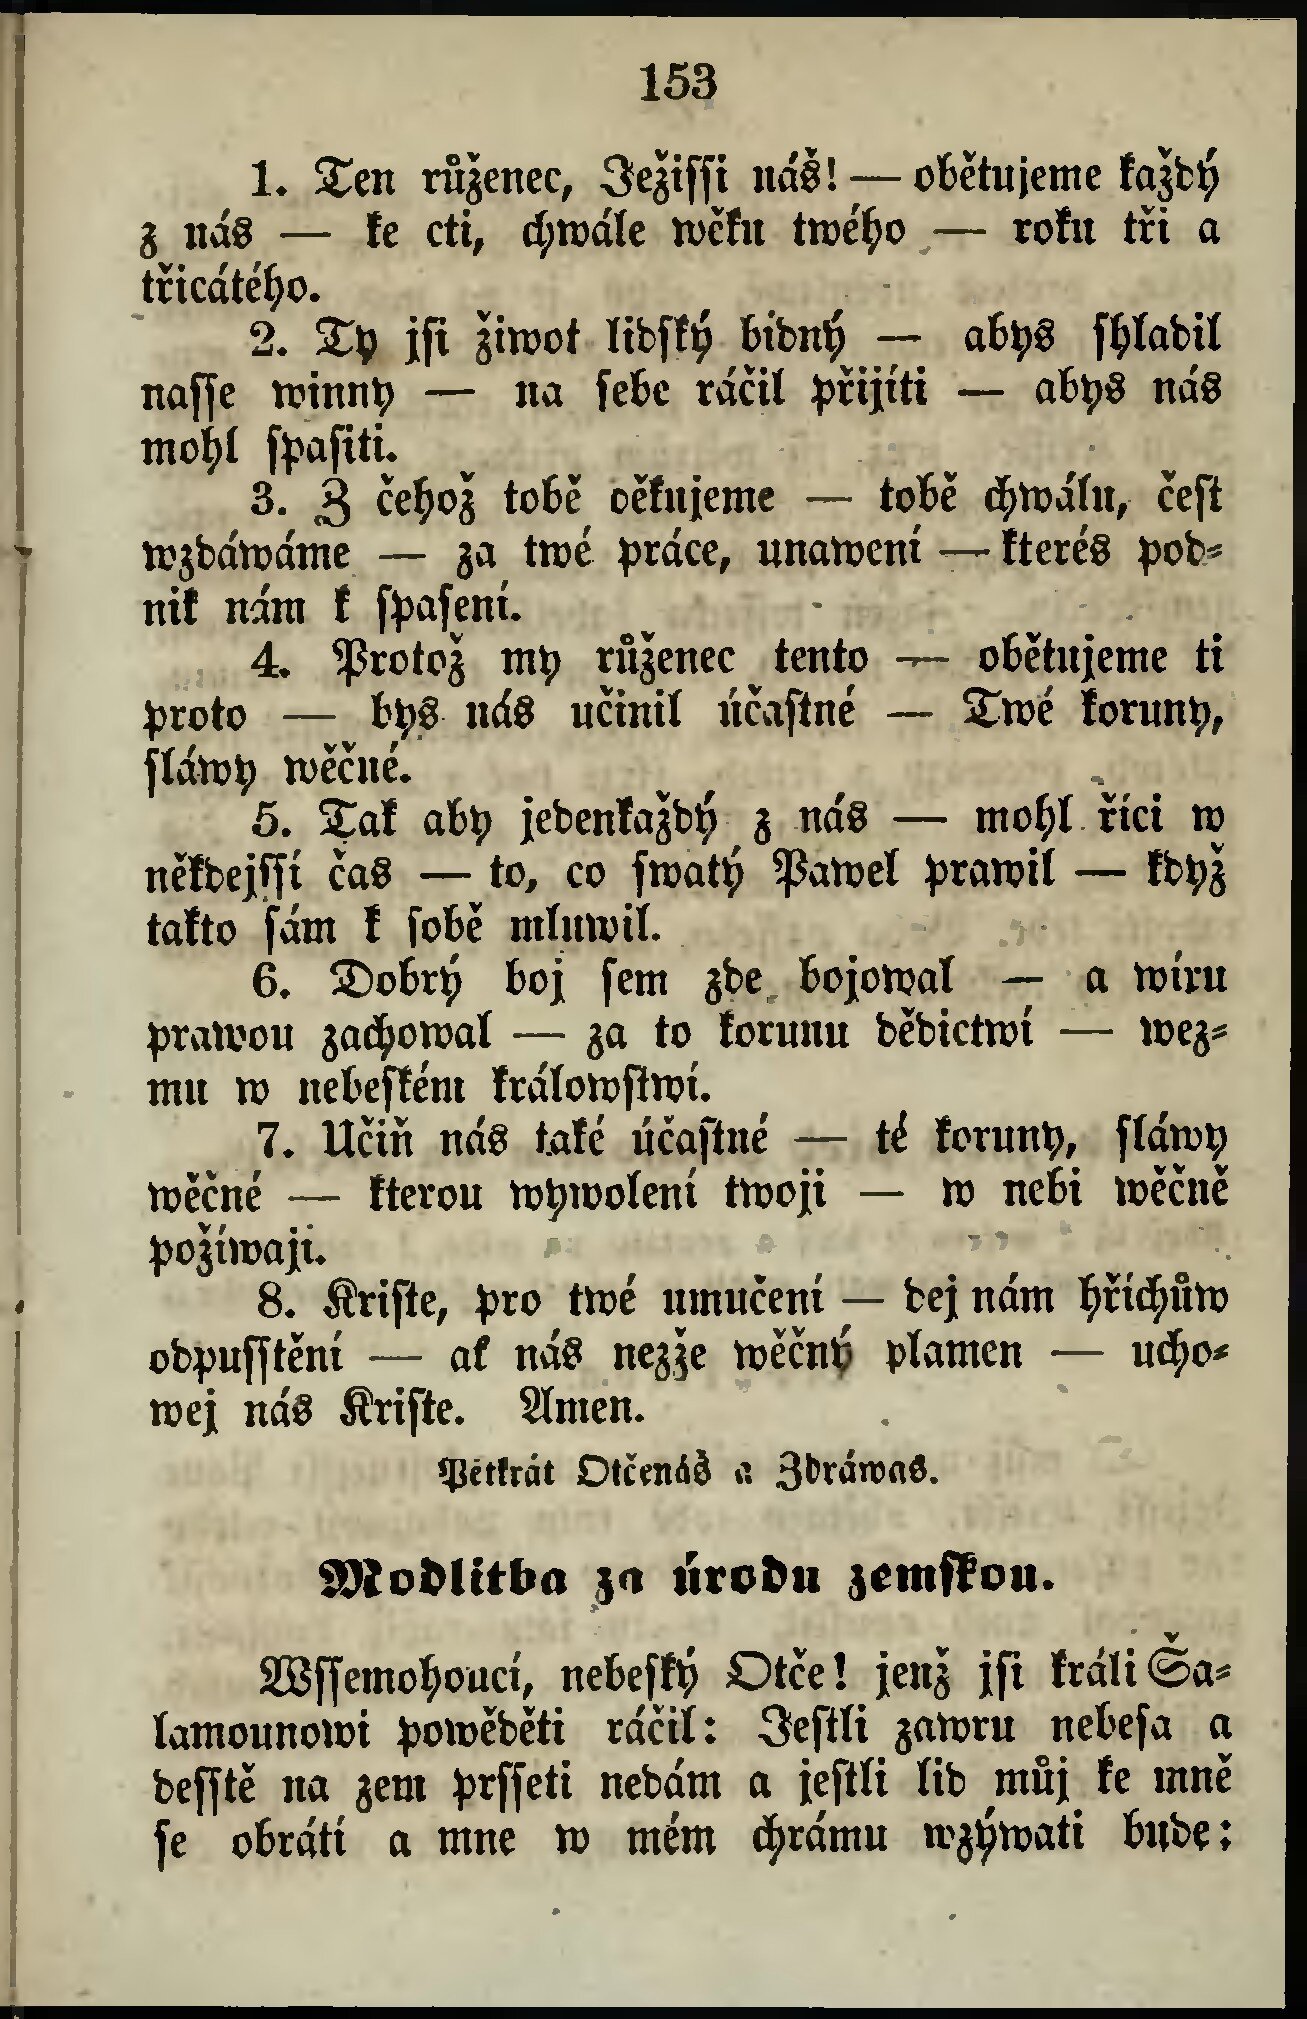 153
1. Ten růženec, Ježiſſi náš! — obětujeme každý
z nás — ke cti, chwále wěku twého — roku tři a
třicátého.
2. Ty jſi žiwot lidſký bidný — abys ſhladil
naſſe winny — na ſebe ráčil přijíti — abys nás
mohl ſpaſiti.
3. Z čehož tobě děkujeme — tobě chwálu, čeſt
wzdáwáme — za twé práce, unawení — kterés pod-
nik nám k ſpaſení.
4. Protož my růženec tento — obětujeme ti
proto — bys nás učinil účaſtné — Twé koruny,
ſláwy wěčné.
5. Tak aby jedenkaždý z nás — mohl říci w
někdejſſí čas — to, co ſwatý Pawel prawil — když
takto ſám k ſobě mluwil.
6. Dobrý boj ſem zde bojowal — a wíru
prawou zachowal — za to korunu dědictwí — wez-
mu w nebeſkém králowſtwí.
7. Učiň nás také účaſtné — té koruny, ſláwy
wěčné — kterou wywolení twoji — w nebi wěčně
požíwaji.
8. Kriſte, pro twé umučení — dej nám hříchůw
odpuſſtění — ať nás nezže wěčný plamen — ucho-
wej nás Kriſte. Amen.
Pětkrát Otčenáš a Zdráwas.
Modlitba za úrodu zemſkou.
Wſſemohoucí, nebeſký Otče! jenž jſi králi Ša-
lamounowi powěděti ráčil: Jeſtli zawru nebeſa a
deſſtě na zem prſſeti nedám a jeſtli lid můj ke mně
ſe obrátí a mne w mém chrámu wzýwati bude: